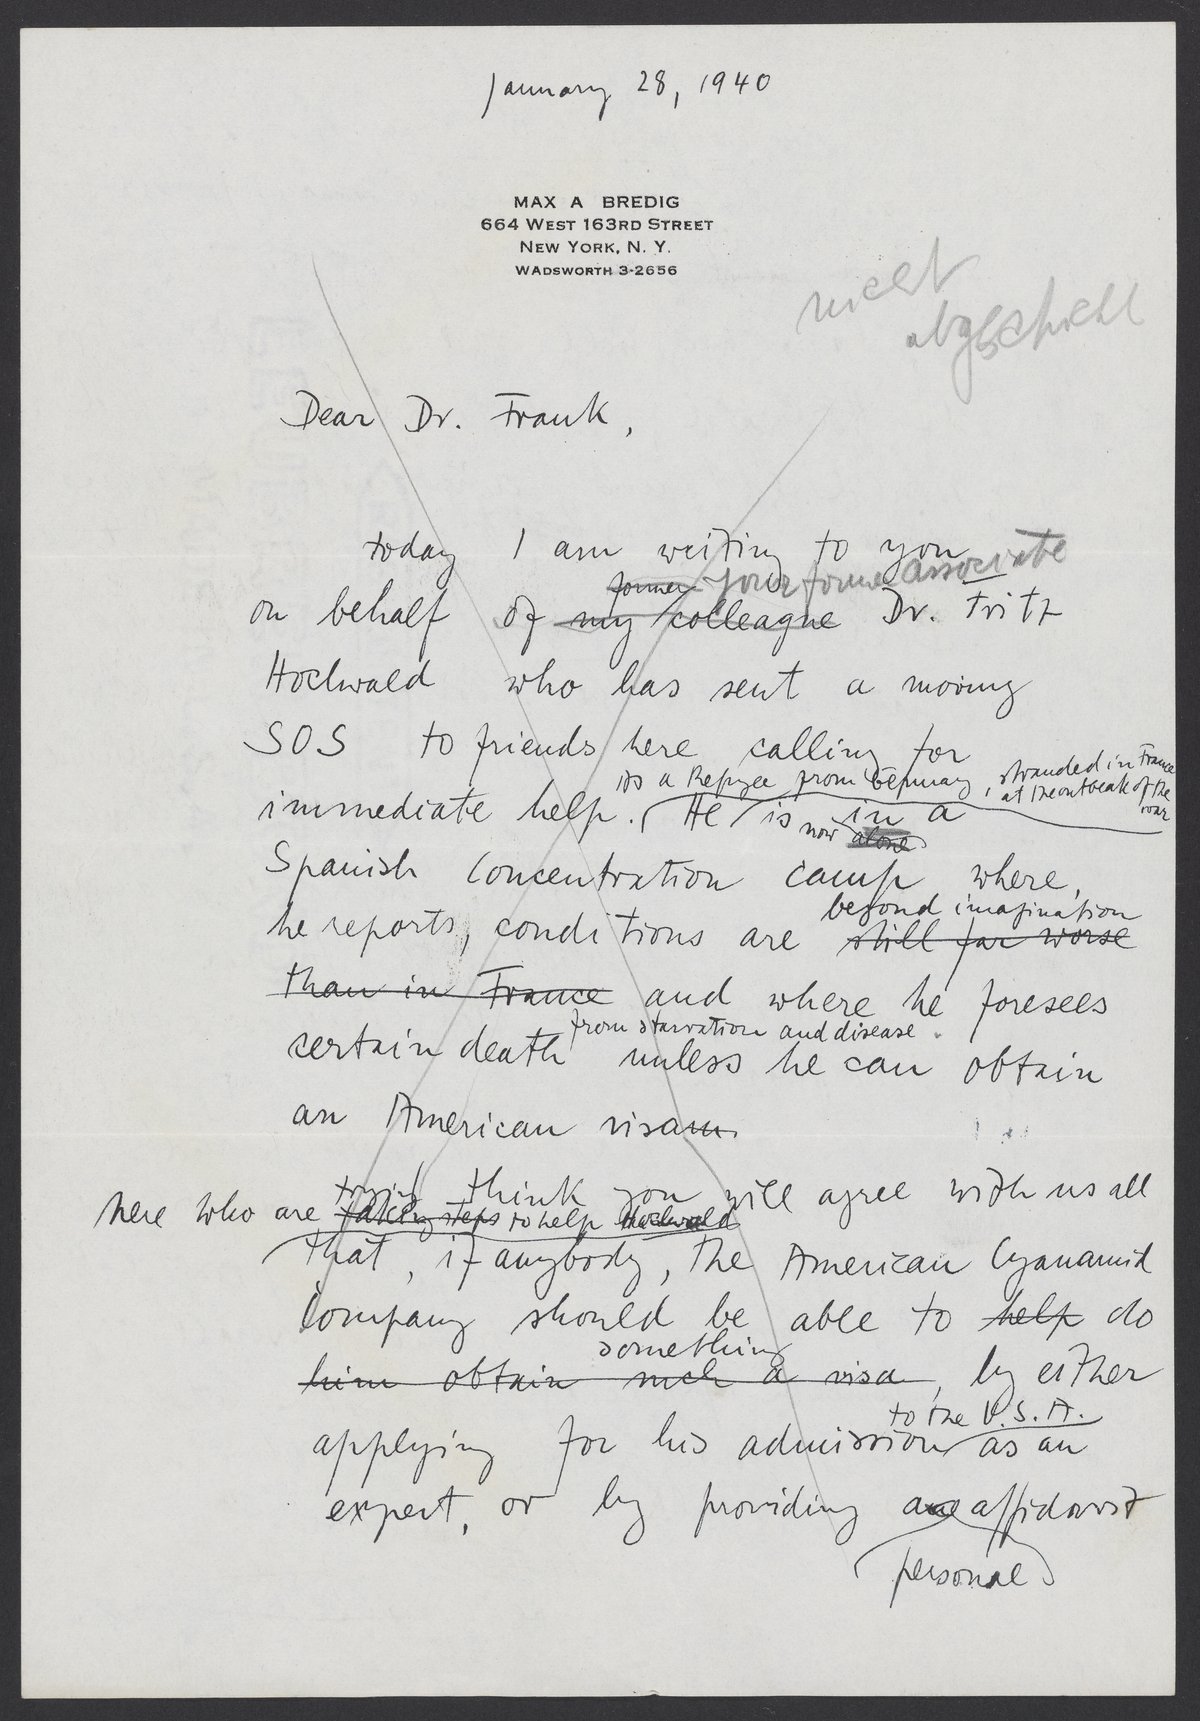 January 28, 1940
MAX A BREDIG
664 WEST 163RD STREET
NEW YORK, N. Y.
WADSWORTH 3-2656
nicht
abgeschickt
Dear Dr. Frank,
today I am writing to you
former your former associate
on behalf of my colleague Dr. Fritz
Hochwald who has sent a moving
SOS to friends here calling for
as a Refugee from Germany, stranded in France
at the outbreak of the
war
immediate help. He is in a
now alone
Spanish Concentration camp where,
beyond imagination
he reports, conditions are still far worse
than in France and where he foresees
from starvation and disease
certain death unless he can obtain
an American visa
I think you will agree with us all
trying
here who are taking steps to help Hochwald
that, if anybody, the American Cyanamid
Company should be able to help do
something
him obtain such a visa, by either
to the U.S.A.
applying for his admission as an
expert, or by providing affidavit
personal